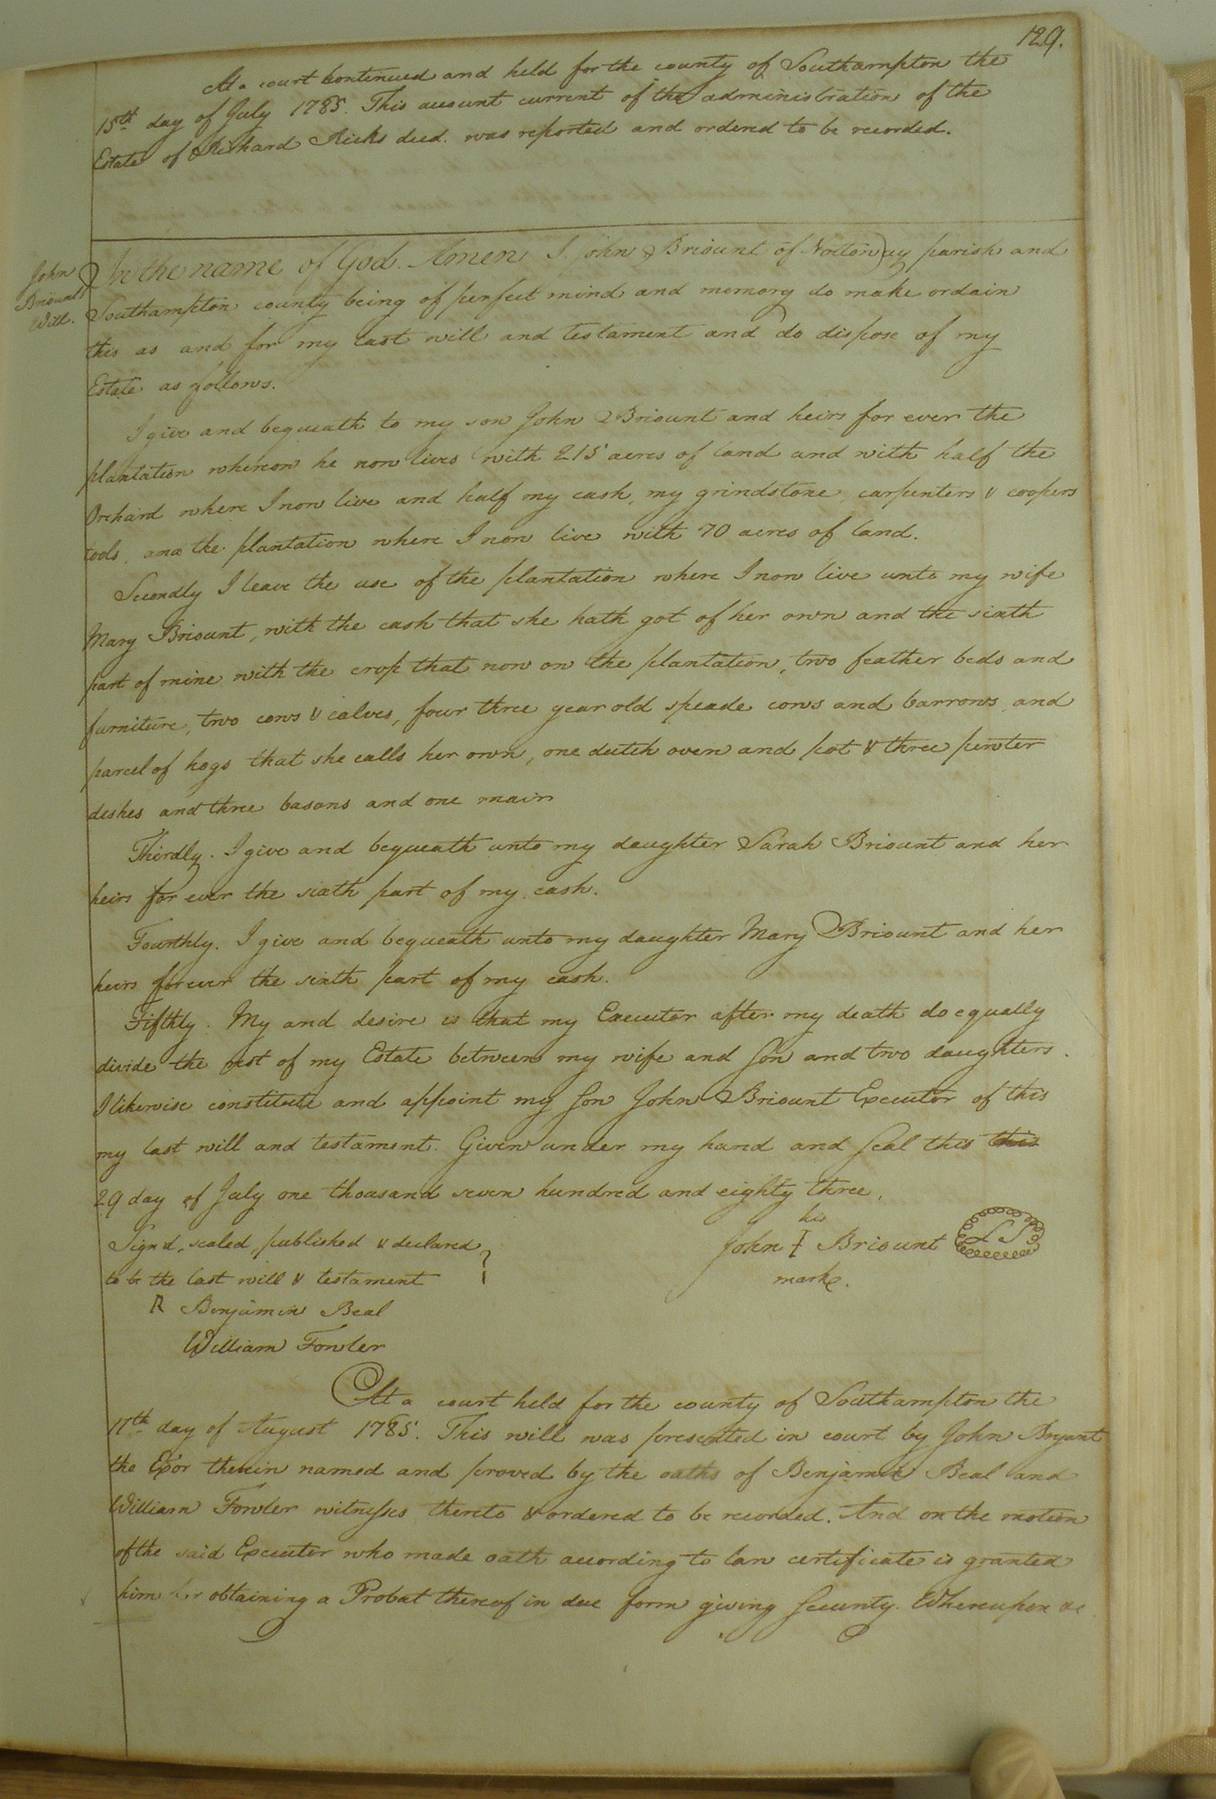 129.
At a court continued and held for the county of Southampton the
15th day of July 1785. This account current of the administration of the
Estate of Richard Ricks decd. was reported and ordered to be recorded.
John
Briount
Will.
In the name of God. Amen I John Briount of Nottoway parish and
Southampton county being of perfect mind and memory do make ordain
this as and for my last will and testament and do dispose of my
Estate as follows.
I give and bequeath to my son John Briount and heirs for ever the
plantation whereon he now lives with 215 acres of land and with half the
Orchard where I now live and half my cash, my grindstone, carpenters & coopers
tools, and the plantation where I now live with 70 acres of land.
Secondly I leave the use of the plantation where I now live unto my wife
Mary Briount, with the cash that she hath got of her own and the sixth
part of mine with the crop that now on the plantation, two feather beds and
furniture, two cows & calves, four three year old speade cows and barrows, and
parcel of hogs that she calls her own, one dutch oven and pot & three pewter
deshes and three basons and one main
Thirdly. I give and bequeath unto my daughter Sarah Briount and her
heirs for ever the sixth part of my cash.
Fourthly. I give and bequeath unto my daughter Mary Briount and her
heirs forever the sixth part of my cash.
Fifthly. My and desire is that my Executor after my death do equally
divide the rest of my Estate between my wife and son and two daughters.
I likewise constitute and appoint my son John Briount Executor of this
my last will and testament. Given under my hand and seal this this
29 day of July one thousand seven hundred and eighty three.
Signd, sealed, published & declared
to be the last will & testament
R Benjamin Beal
William Fowler
his
John I Briount L S
mark.
At a court held for the county of Southampton the
17th day of August 1785. This will was presented in court by John Bryant
the Exor therein named and proved by the oaths of Benjamin Beal and
William Fowler witnesses thereto & ordered to be recorded. And on the motion
of the said Executor who made oath according to law certificate is granted
him for obtaining a Probat thereof in due form giving security. Whereupon &c